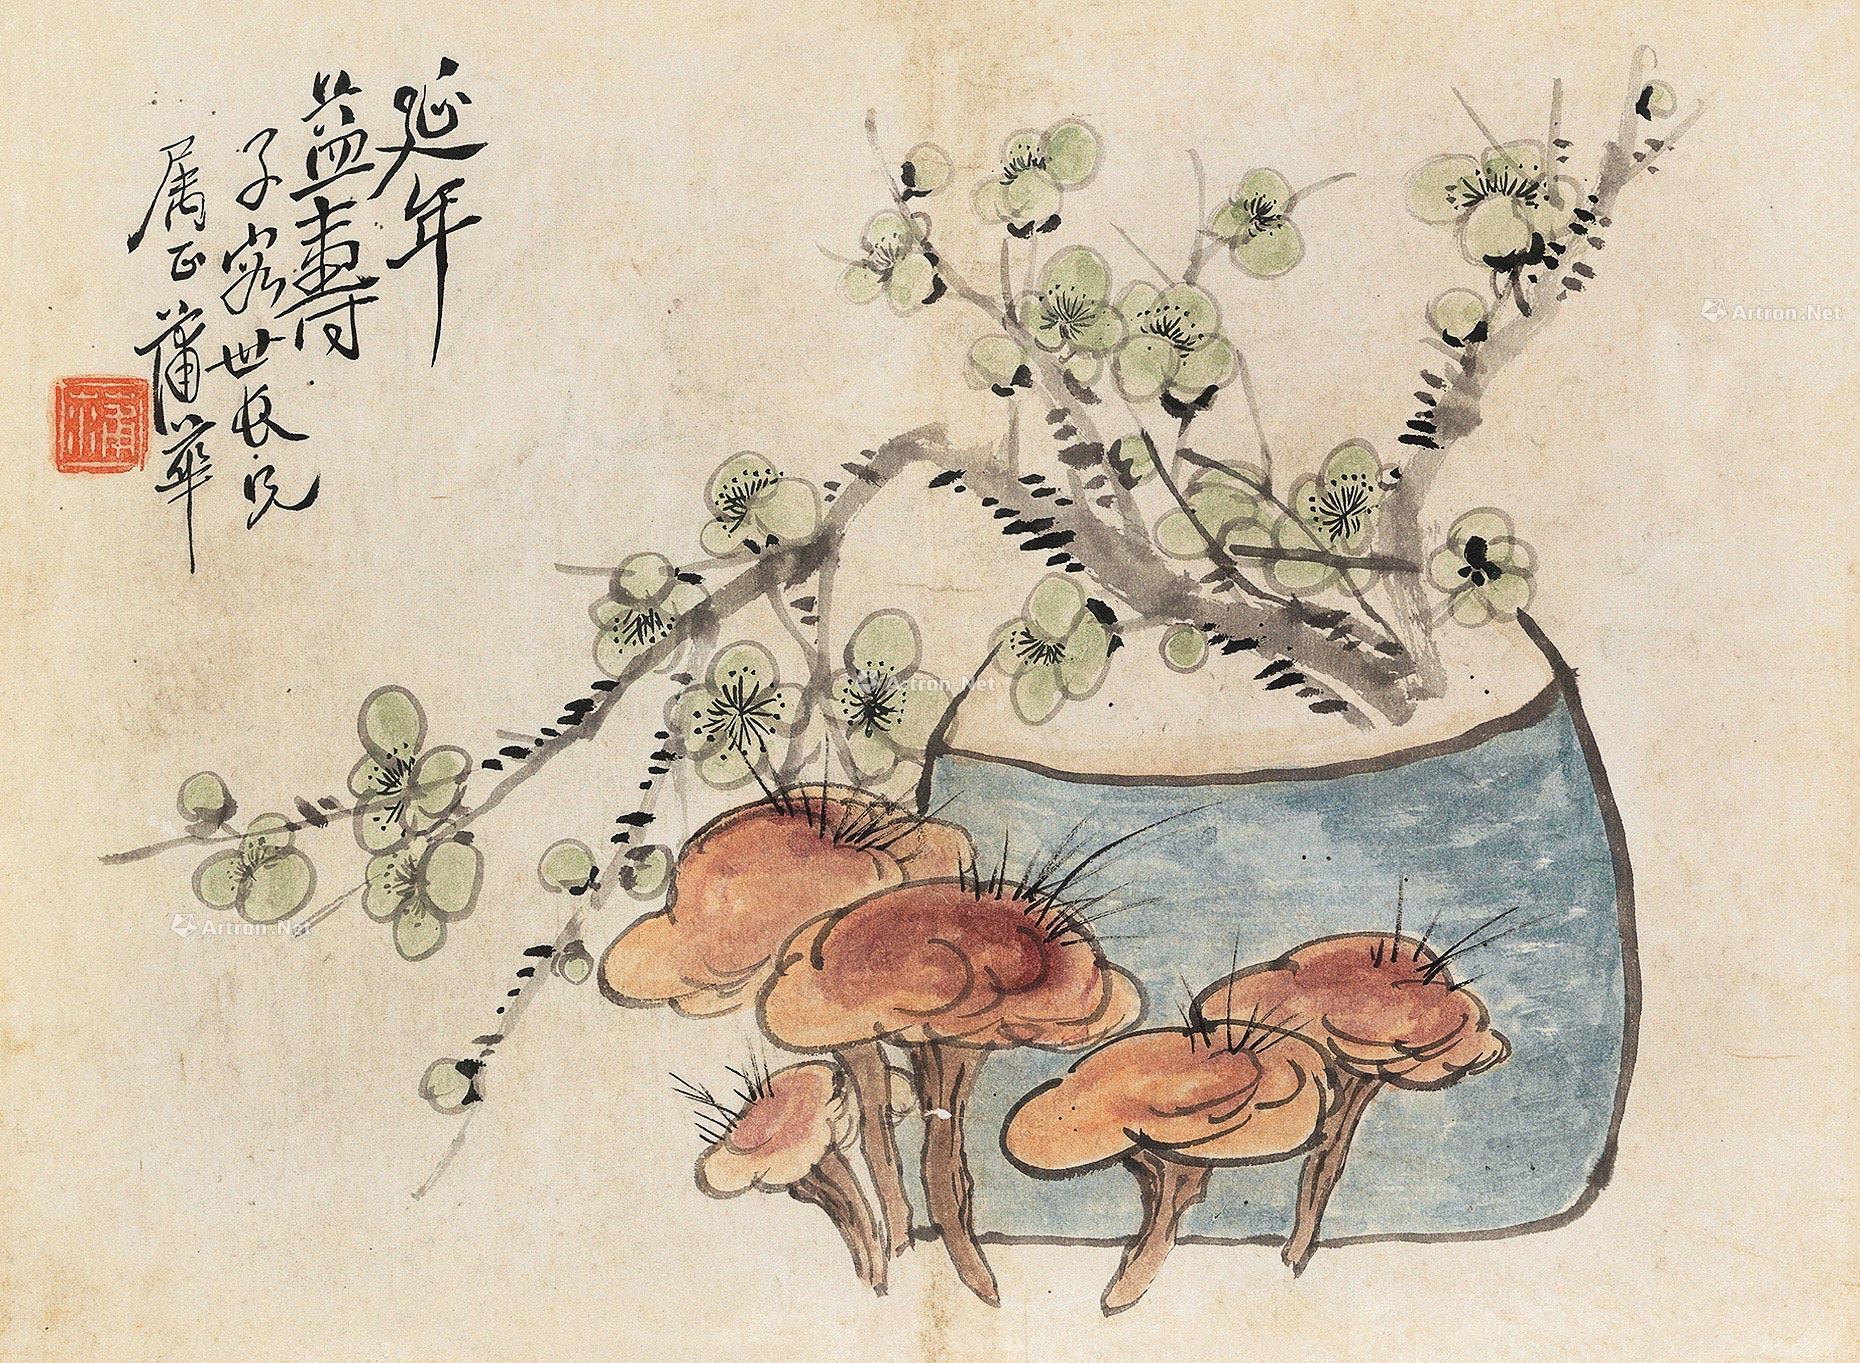 延年
益壽
子容世长兄
属正蒲華
Artron.Net
Artron.Net
Artron.Net